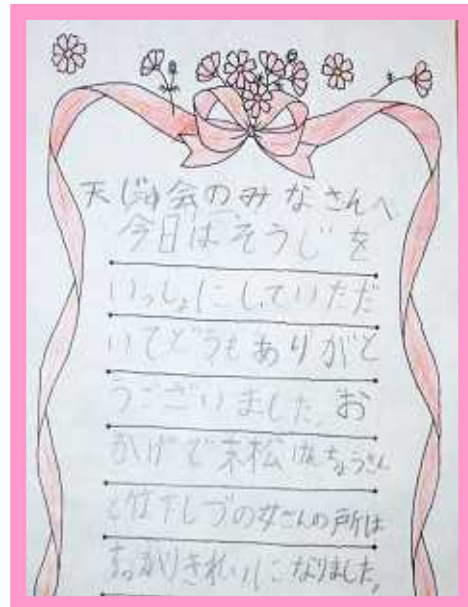 天じゅ会のみなさんへ
今日はそうじを
いっしょにしていただ
いてどうもありがと
うございました。お
かげで末松けんちょうさん
と竹下しづの女さんの所は
すっかりきれいになりました。